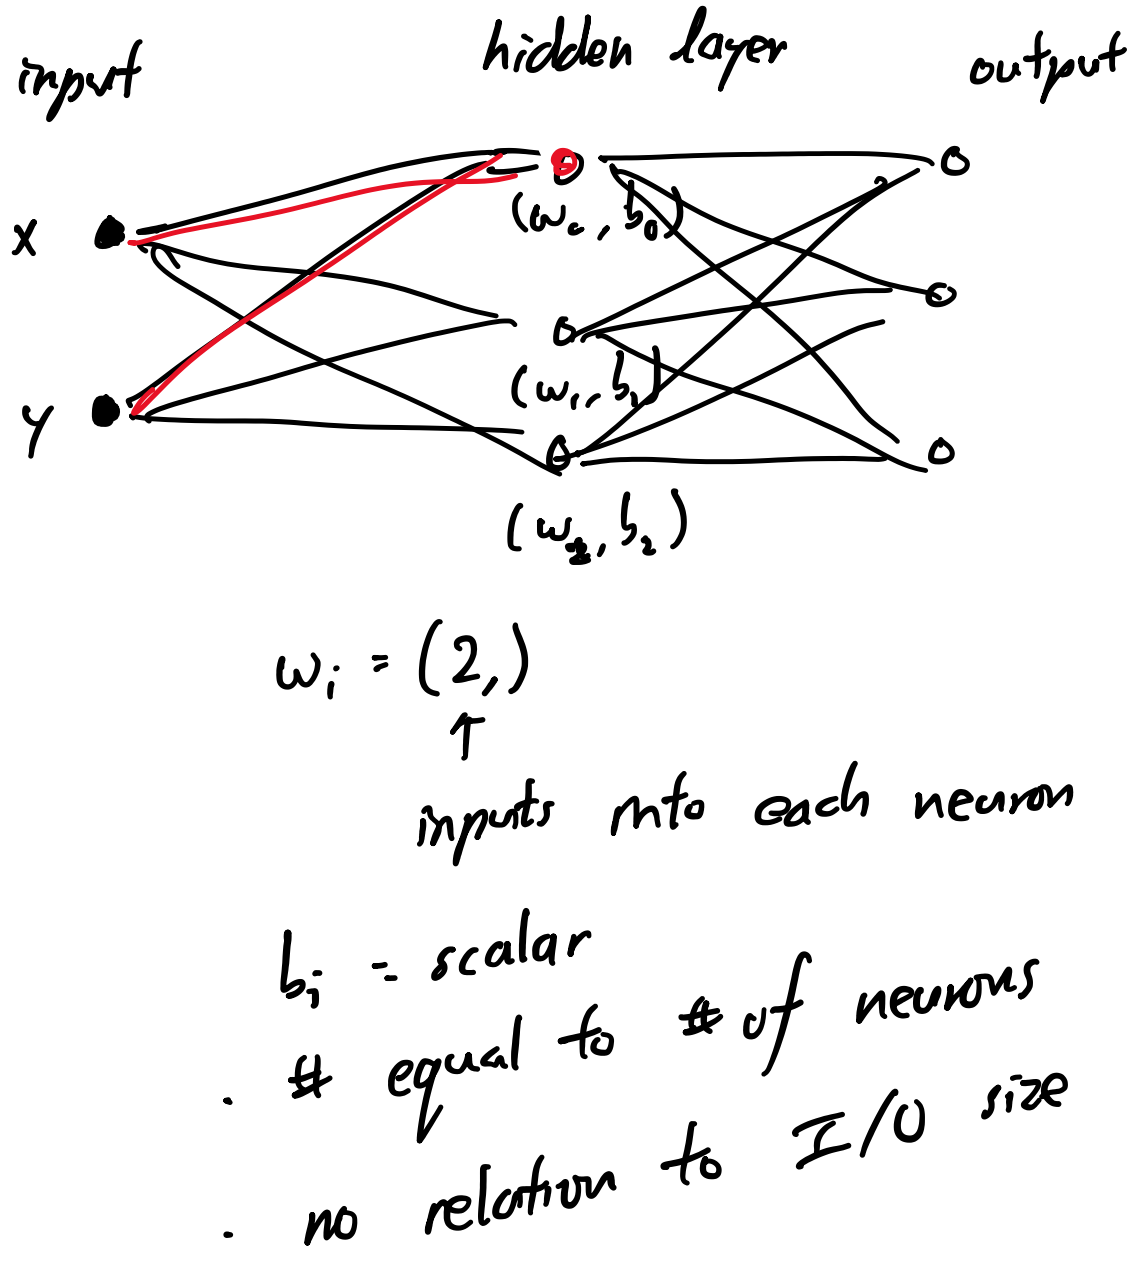 input hidden layer output
x
(w₀, b₀)
(w₁, b₁)
y
(w₂, b₂)
wᵢ = (2,)
↑
inputs into each neuron
bᵢ = scalar
· # equal to # of neurons
· no relation to I/O size